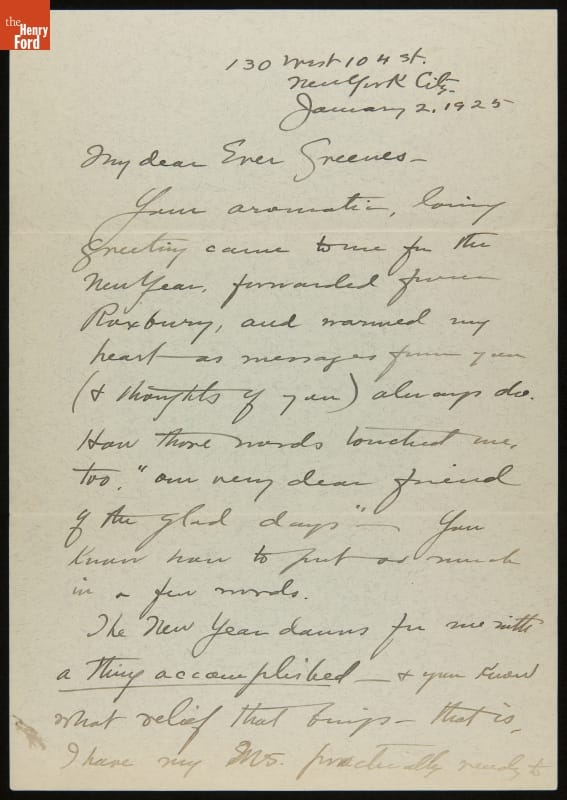 the
Henry
Ford
130 West 104 St.
New York City
January 2, 1925
My dear Ever Greenes—
Your aromatic, loving
greeting came to me for the
New Year, forwarded from
Roxbury, and warmed my
heart as messages from you
(& thoughts of you) always do.
How those words touched me,
too, "our very dear friend
of the glad days"— You
know how to put so much
in a few words.
The New Year dawns for me with
a thing accomplished — & you know
what relief that brings — that is,
I have my MS. practically ready to